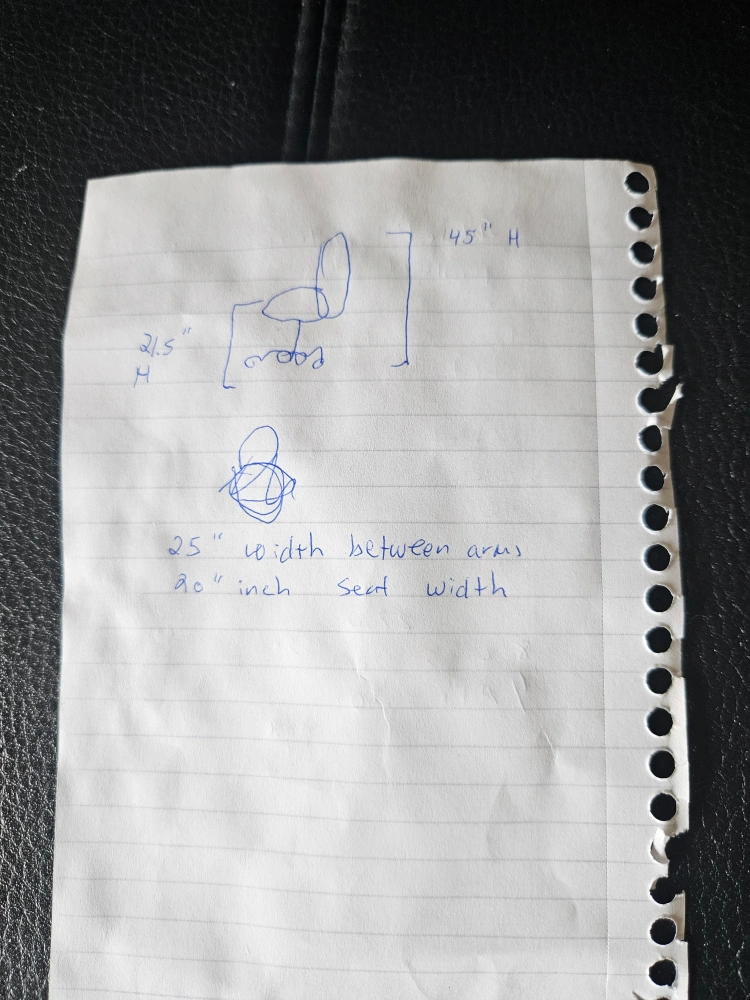 45" H
21.5"
H
25" width between arms
20" inch seat width